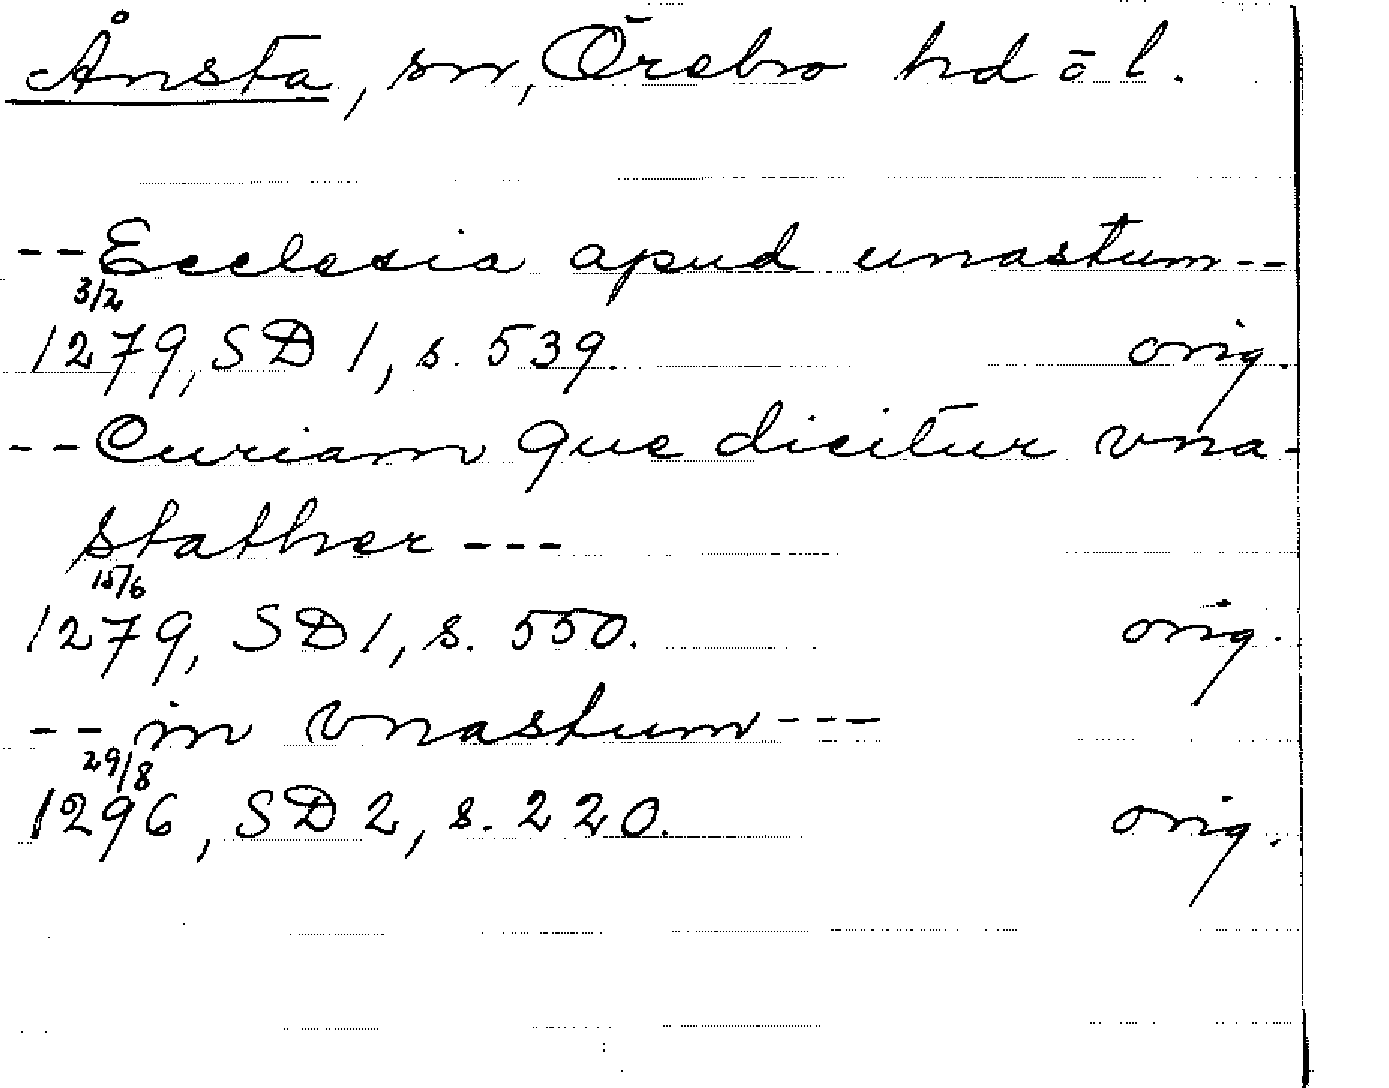 Ånsta, sn, Örebro hd ō l.
--Ecclesia apud unastum--
3/2
1279, SD 1, s. 539. orig.
--Curiam que dicitur vna-
stather---
15/6
1279, SD 1, s. 550. orig.
--in vnastum---
29/8
1296, SD 2, s. 220. orig.